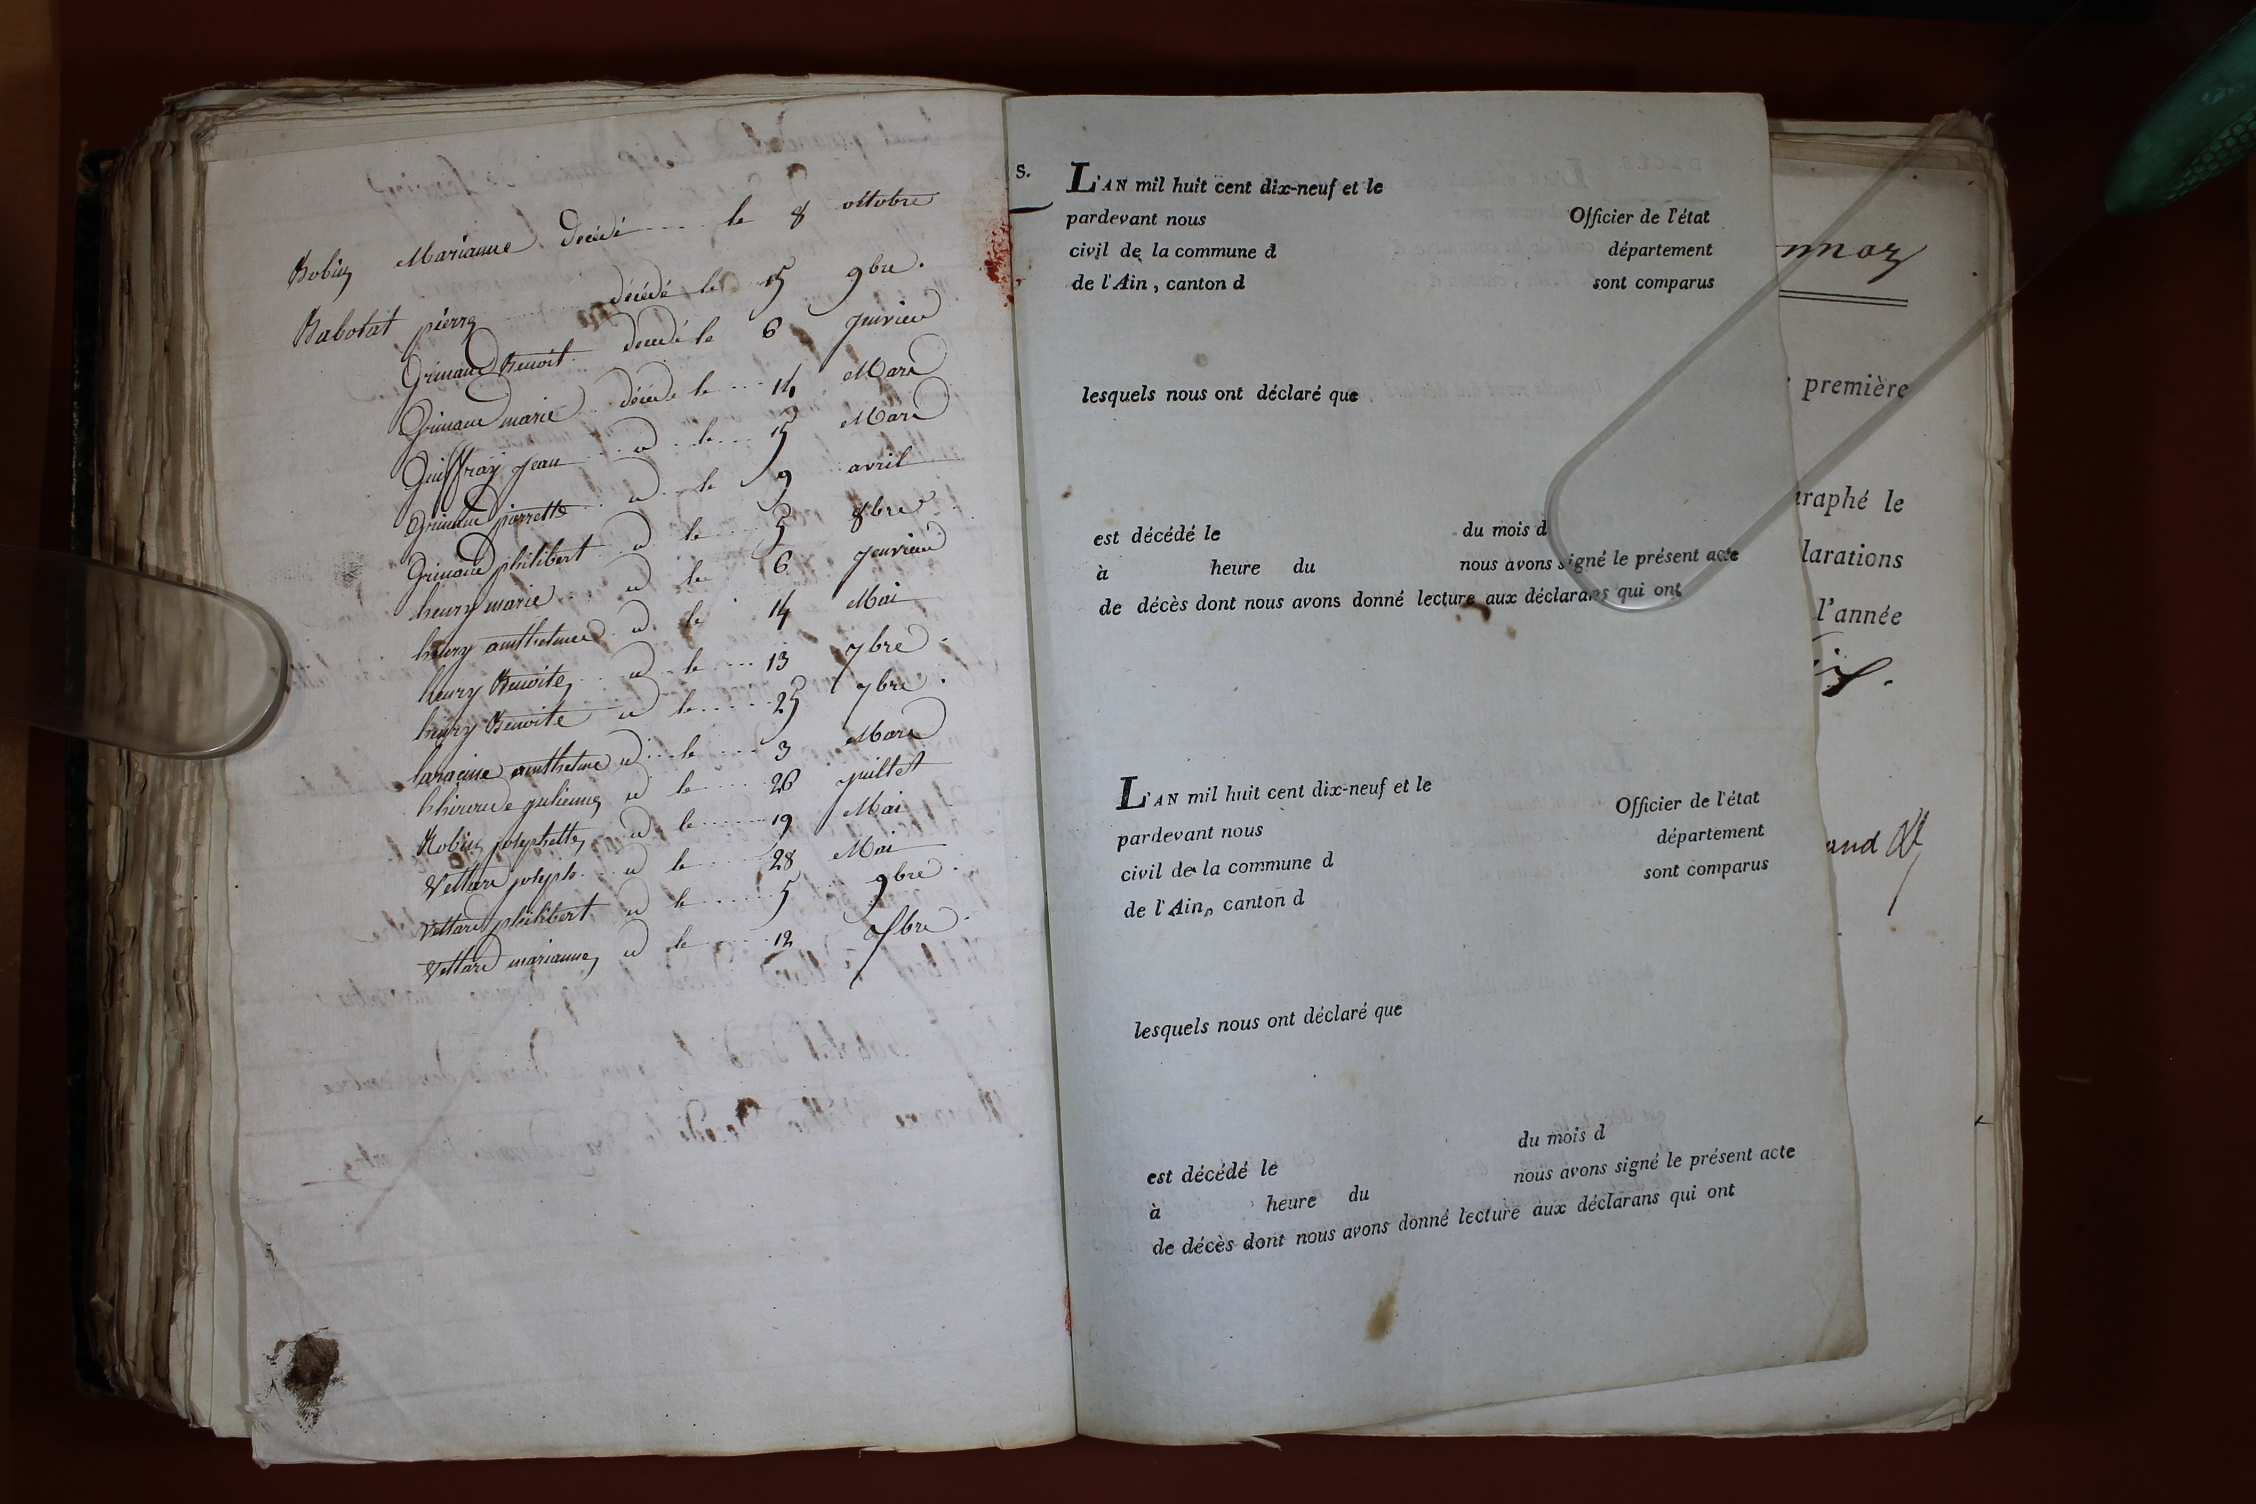 Bobin Marianne décédé le 8 octobre
Babolat pierre décédé le 15 9bre.
Grimaud Benoit décédé le 6 Janvier
Grimaud marie décédé le 14 Mars
Guiffray Jean id le 15 Mars
Grimaud pierrette id le 9 avril
Grimaud philibert id le 5 8bre
henry marie id le 6 Janvier
henry anthelmee id le 14 Mai
henry Benoite id le 13 7bre
henry Benoite id le 25 7bre.
laracine anthelme id le 3 Mars
julienne id le 26 Juillet
Robin josephette id le 19 Mai
Vettard joseph id le 28 Mai
Vettard philibert id le 5 9bre
Vettard marianne id le 12 bre
S.
L'AN mil huit cent dix-neuf et le
pardevant nous Officier de l'état
civil de la commune d département
de l'Ain, canton d sont comparus
lesquels nous ont déclaré que
est décédé le du mois d
à heure du nous avons signé le présent acte
de décès dont nous avons donné lecture aux déclarans qui ont
L'AN mil huit cent dix-neuf et le
pardevant nous Officier de l'état
civil de la commune d département
de l'Ain, canton d sont comparus
lesquels nous ont déclaré que
est décédé le du mois d
à heure du nous avons signé le présent acte
de décès dont nous avons donné lecture aux déclarans qui ont
première
araphé le
larations
l'année